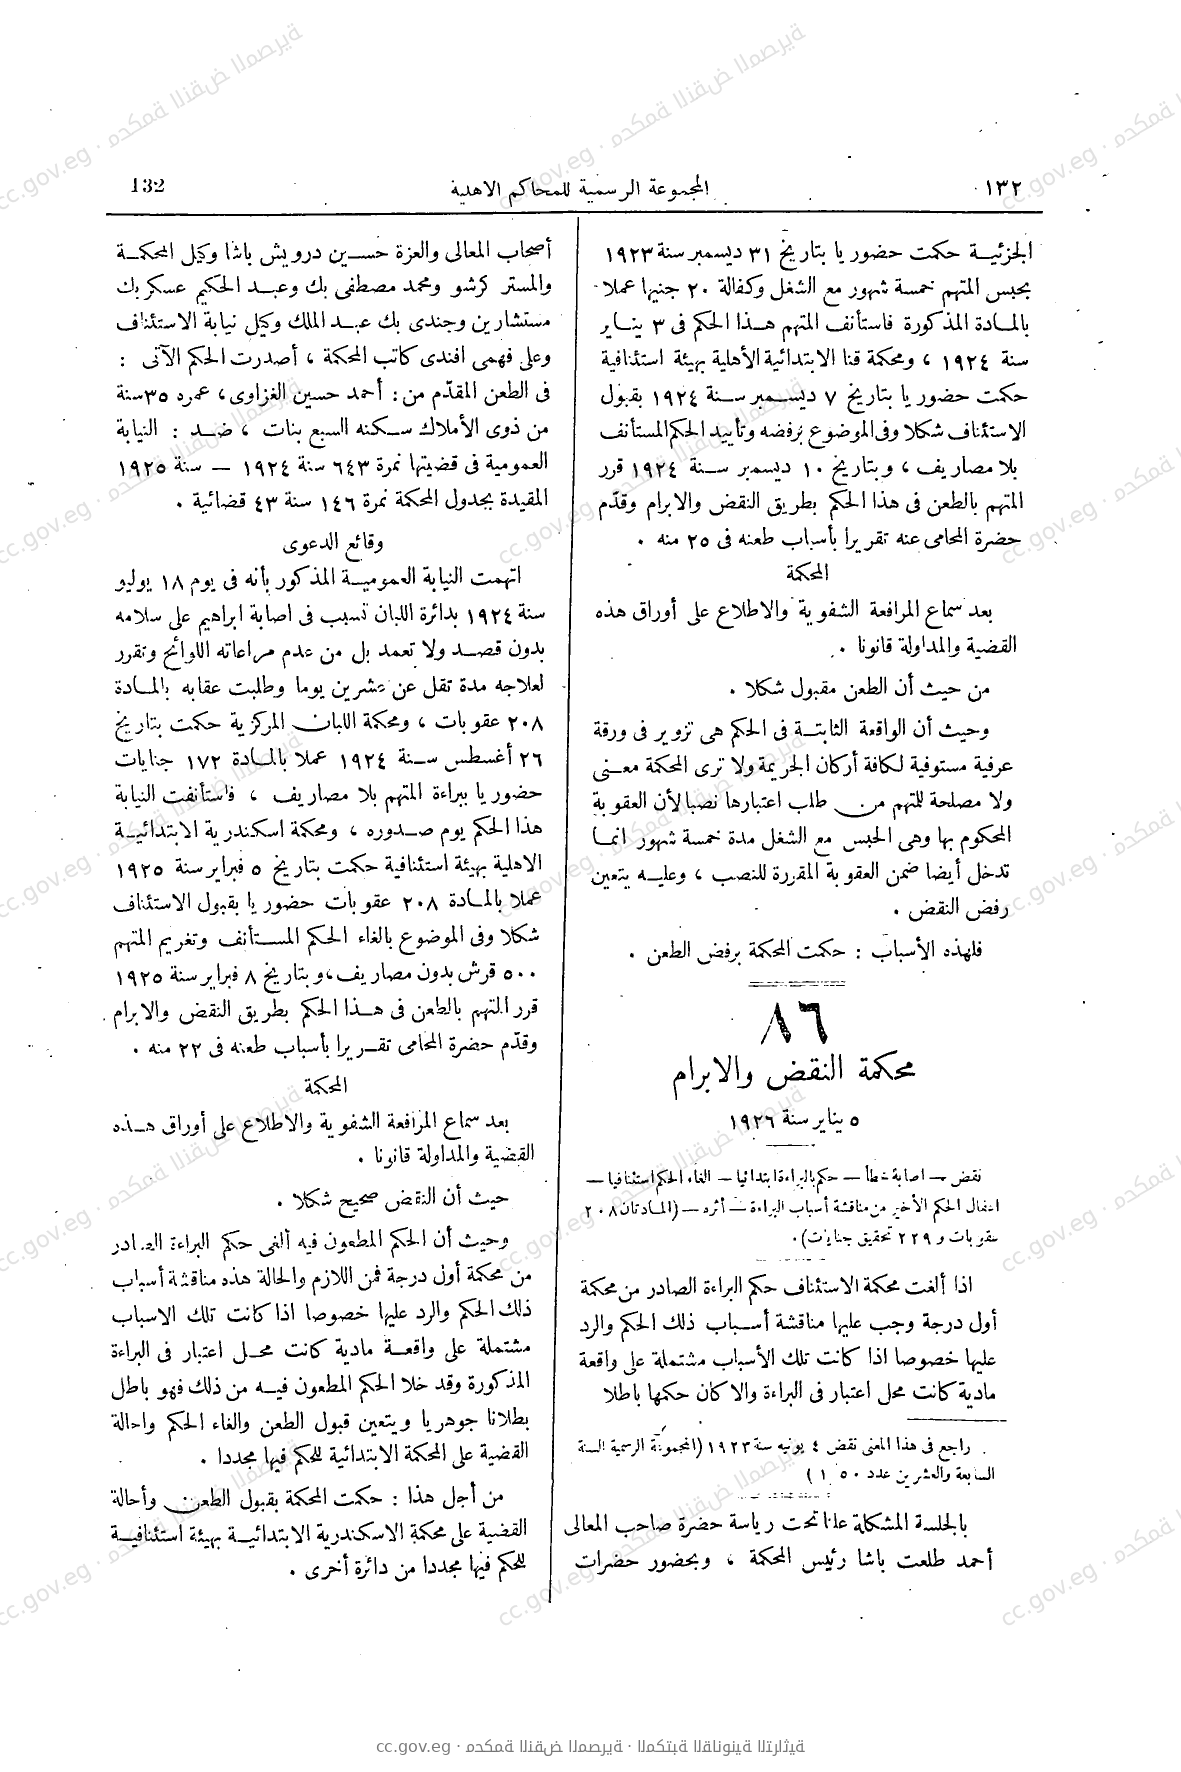 ١٣٢
المجموعة الرسمية للمحاكم الاهلية
132
الجزئية حكمت حضوريا بتاريخ ٣١ ديسمبر سنة ١٩٢٣
بحبس المتهم خمسة شهور مع الشغل وكفالة ٢٠ جنيها عملا
بالمادة المذكورة فاستأنف المتهم هذا الحكم فى ٣ يناير
سنة ١٩٢٤ ، ومحكمة قنا الابتدائية الأهلية بهيئة استئنافية
حكمت حضوريا بتاريخ ٧ ديسمبر سنة ١٩٢٤ بقبول
الاستئناف شكلا وفى الموضوع برفضه وتأييد الحكم المستأنف
بلا مصاريف ، وبتاريخ ١٠ ديسمبر سنة ١٩٢٤ قرر
المتهم بالطعن فى هذا الحكم بطريق النقض والابرام وقدّم
حضرة المحامى عنه تقريرا بأسباب طعنه فى ٢٥ منه .
المحكمة
بعد سماع المرافعة الشفوية والاطلاع على أوراق هذه
القضية والمداولة قانونا .
من حيث أن الطعن مقبول شكلا .
وحيث أن الواقعة الثابتة فى الحكم هى تزوير فى ورقة
عرفية مستوفية لكافة أركان الجريمة ولا ترى المحكمة معنى
ولا مصلحة للمتهم من طلب اعتبارها نصبا لأن العقوبة
المحكوم بها وهى الحبس مع الشغل مدة خمسة شهور انما
تدخل أيضا ضمن العقوبة المقررة للنصب ، وعليه يتعين
رفض النقض .
فلهذه الأسباب : حكمت المحكمة برفض الطعن .
٨٦
محكمة النقض والابرام
٥ يناير سنة ١٩٢٦
نقض — اصابة خطأ — حكم بالبراءة ابتدائيا — الغاء الحكم استئنافيا —
اغفال الحكم الأخير من مناقشة أسباب البراءة — أثره — (المادتان ٢٠٨
عقوبات و ٢٢٩ تحقيق جنايات) .
اذا ألغت محكمة الاستئناف حكم البراءة الصادر من محكمة
أول درجة وجب عليها مناقشة أسباب ذلك الحكم والرد
عليها خصوصا اذا كانت تلك الأسباب مشتملة على واقعة
مادية كانت محل اعتبار فى البراءة والا كان حكمها باطلا
راجع فى هذا المعنى نقض ٤ يونيه سنة ١٩٢٣ (المجموعة الرسمية السنة
السابعة والعشرين عدد ٥٠ ١ )
بالجلسة المشكلة علنا تحت رياسة حضرة صاحب المعالى
أحمد طلعت باشا رئيس المحكمة ، وبحضور حضرات
أصحاب المعالى والعزة حسين درويش باشا وكيل المحكمة
والمستر كرشو ومحمد مصطفى بك وعبد الحكيم عسكر بك
مستشارين وجندى بك عبد الملك وكيل نيابة الاستئناف
وعلى فهمى افندى كاتب المحكمة ، أصدرت الحكم الآتى :
فى الطعن المقدّم من : أحمد حسين الغزاوى، عمره ٣٥ سنة
من ذوى الأملاك سكنه السبع بنات ، ضد : النيابة
العمومية فى قضيتها نمرة ٦٤٣ سنة ١٩٢٤ — سنة ١٩٢٥
المقيدة بجدول المحكمة نمرة ١٤٦ سنة ٤٣ قضائية .
وقائع الدعوى
اتهمت النيابة العمومية المذكور بأنه فى يوم ١٨ يوليو
سنة ١٩٢٤ بدائرة اللبان تسبب فى اصابة ابراهيم على سلامه
بدون قصد ولا تعمد بل من عدم مراعاته اللوائح وتقرر
لعلاجه مدة تقل عن عشرين يوما وطلبت عقابه بالمادة
٢٠٨ عقوبات ، ومحكمة اللبان المركزية حكمت بتاريخ
٢٦ أغسطس سنة ١٩٢٤ عملا بالمادة ١٧٢ جنايات
حضوريا ببراءة المتهم بلا مصاريف ، فاستأنفت النيابة
هذا الحكم يوم صدوره ، ومحكمة اسكندرية الابتدائية
الاهلية بهيئة استئنافية حكمت بتاريخ ٥ فبراير سنة ١٩٢٥
عملا بالمادة ٢٠٨ عقوبات حضوريا بقبول الاستئناف
شكلا وفى الموضوع بالغاء الحكم المستأنف وتغريم المتهم
٥٠٠ قرش بدون مصاريف، وبتاريخ ٨ فبراير سنة ١٩٢٥
قرر المتهم بالطعن فى هذا الحكم بطريق النقض والابرام
وقدّم حضرة المحامى تقريرا بأسباب طعنه فى ٢٢ منه .
المحكمة
بعد سماع المرافعة الشفوية والاطلاع على أوراق هذه
القضية والمداولة قانونا .
حيث أن النقض صحيح شكلا .
وحيث أن الحكم المطعون فيه ألغى حكم البراءة الصادر
من محكمة أول درجة فمن اللازم والحالة هذه مناقشة أسباب
ذلك الحكم والرد عليها خصوصا اذا كانت تلك الاسباب
مشتملة على واقعة مادية كانت محل اعتبار فى البراءة
المذكورة وقد خلا الحكم المطعون فيه من ذلك فهو باطل
بطلانا جوهريا ويتعين قبول الطعن والغاء الحكم واحالة
القضية على المحكمة الابتدائية للحكم فيها مجددا .
من أجل هذا : حكمت المحكمة بقبول الطعن وأحالة
القضية على محكمة الاسكندرية الابتدائية بهيئة استئنافية
للحكم فيها مجددا من دائرة أخرى .
cc.gov.eg · محكمة النقض المصرية · المكتبة القانونية التراثية